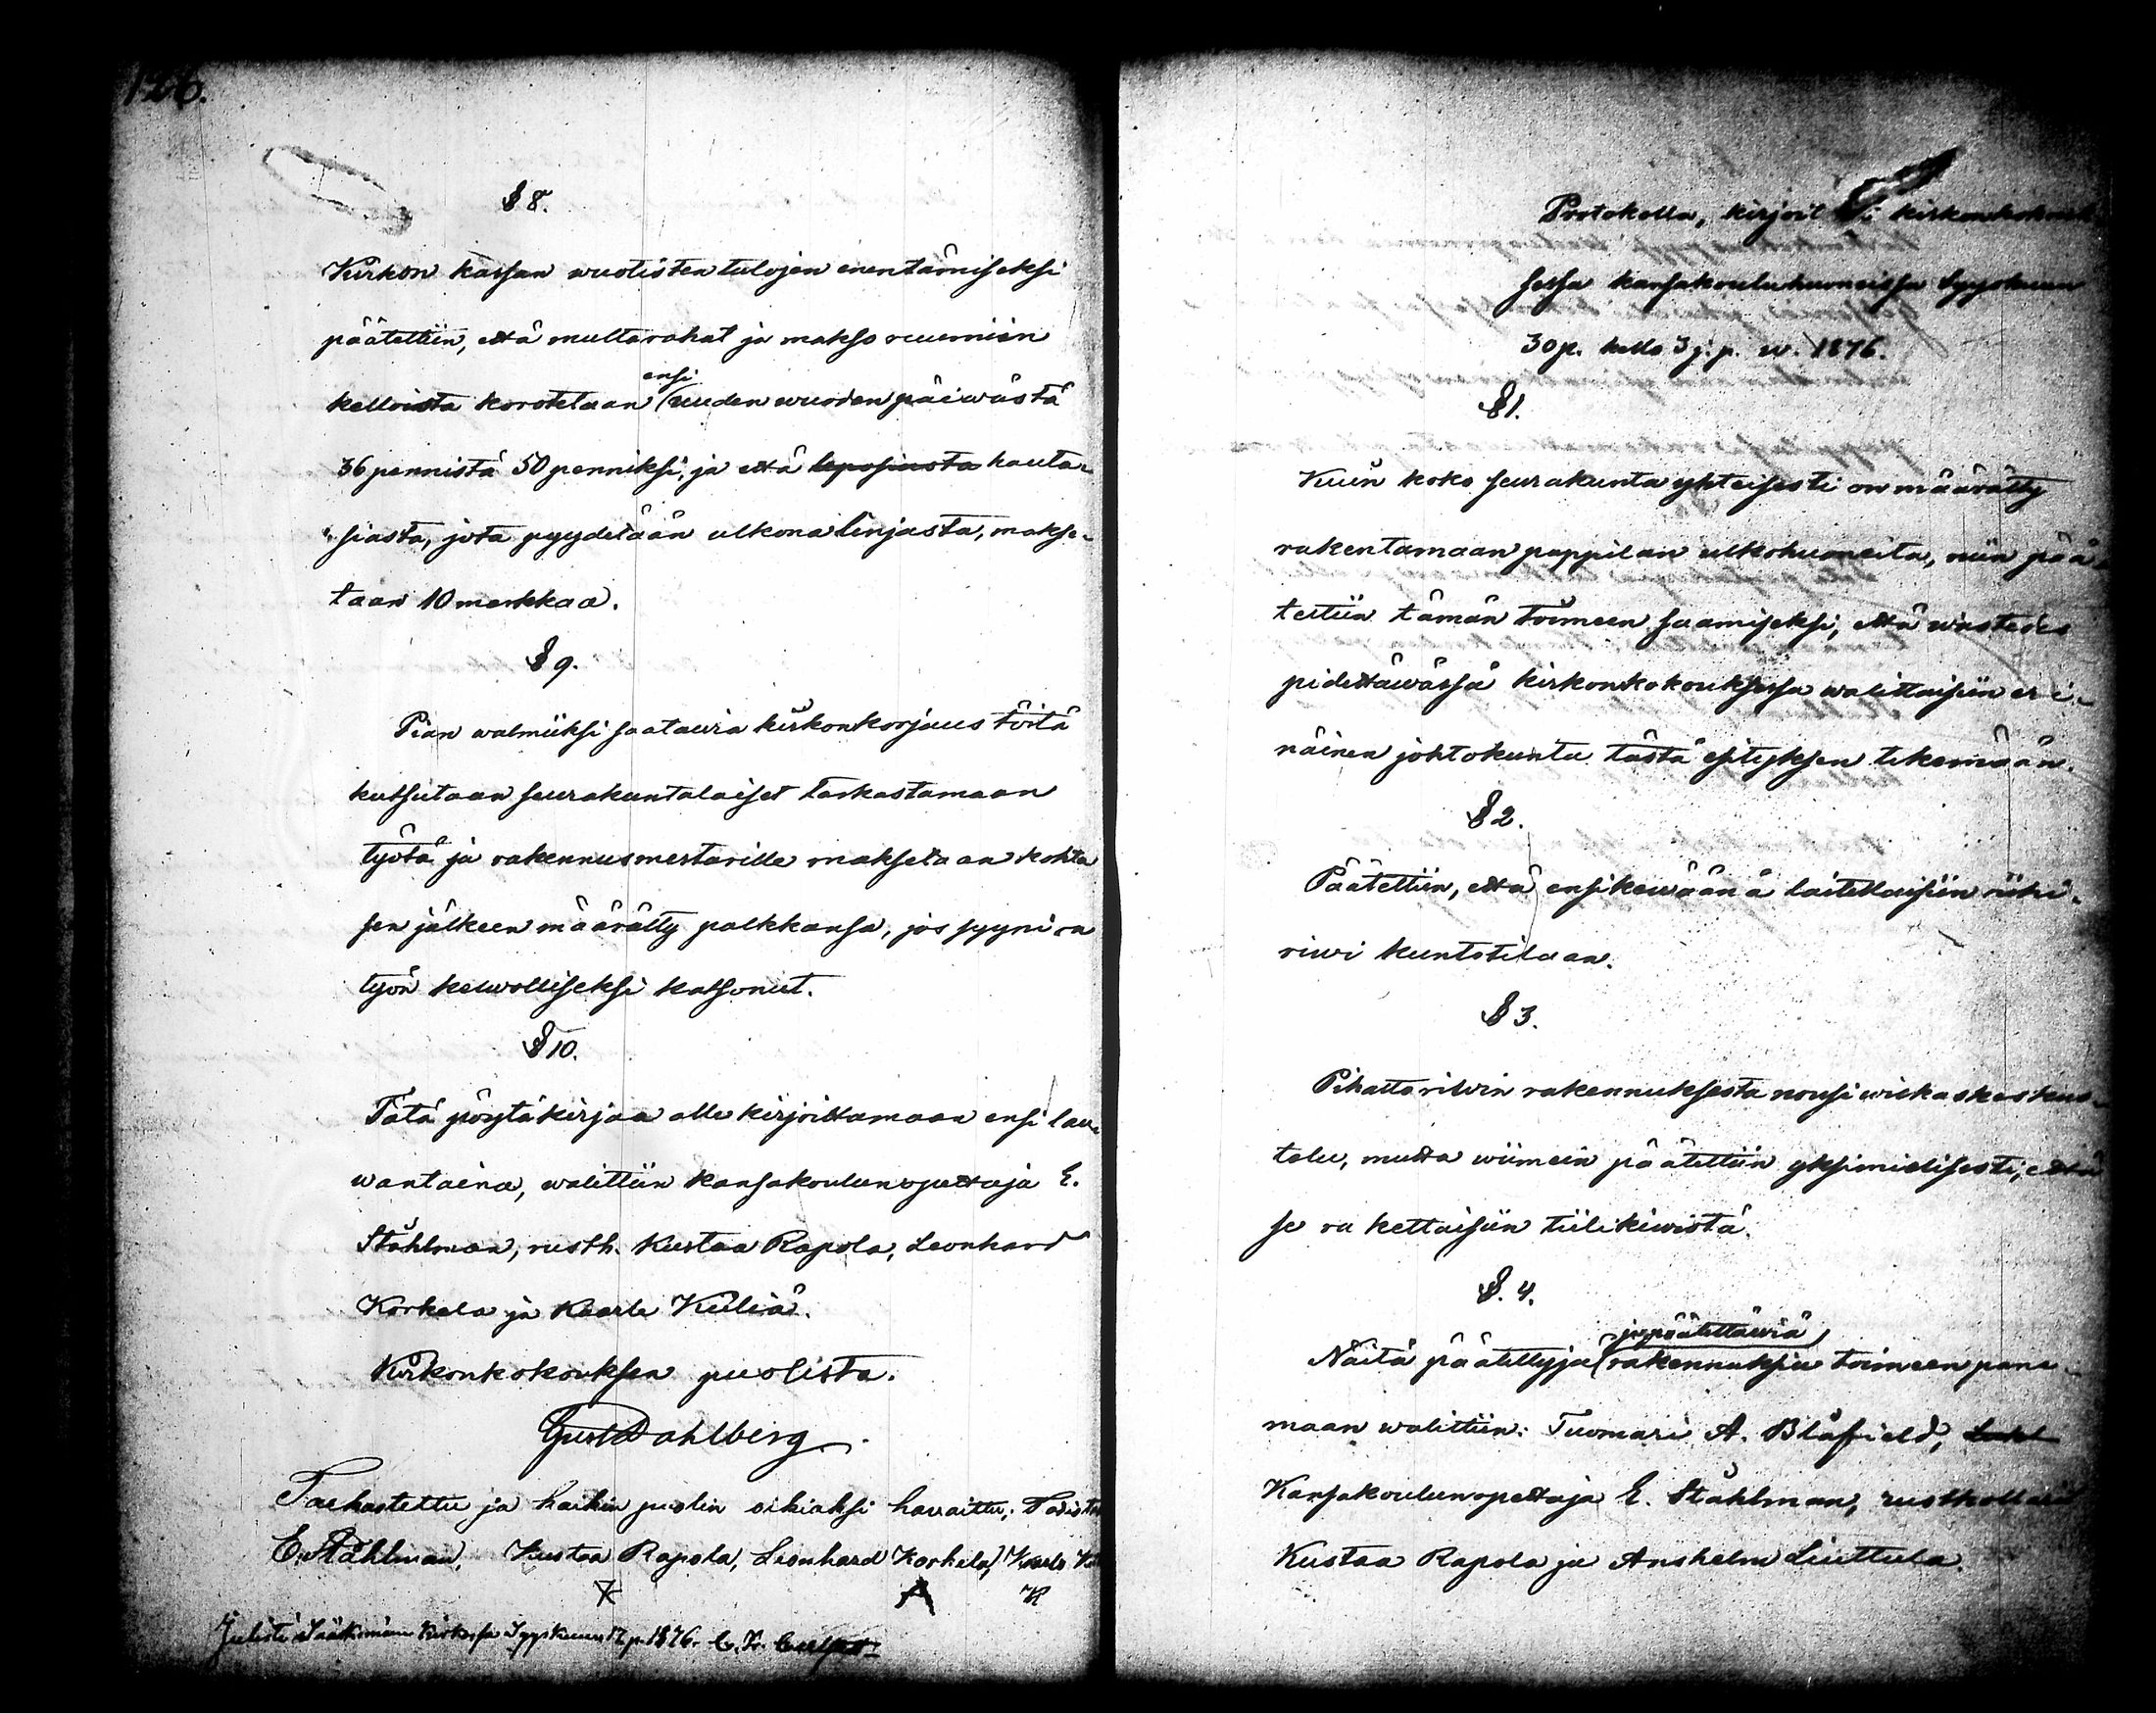 126.
§ 8.
Kirkon kassan wuotisten tulojen enentämiseksi
päätettiin, että multarahat ja makso ruumiin
ensi
kelloista korotetaan uuden wuoden päiwästä
36 pennistä 50 penniksi, ja että leposiasta hauta-
siasta, jota pyydetään ulkona linjasta, makse-
taan 10 markkaa.
§ 9.
Pian walmiiksi saatawia kirkonkorjaus töitä
kutsutaan seurakuntalaiset tarkastamaan
työtä ja rakennusmestarille maksetaan kohta
sen jälkeen määrätty palkkansa, jos syynira
työn kelwolliseksi katsonut.
§ 10.
Tätä pöytäkirjaa alle kirjoittamaan ensi lau-
wantaina, walittiin kansakoulunopettaja E.
Ståhlman, rusth. Kustaa Rapola, Leonhard
Korkela ja Kaarle Kuliä.
Kirkonkokouksen puolista.
Gust Dahlberg
Tarkastettu ja kaikin puolin oikiaksi hawaittu; Todista
E. Ståhlman, Kustaa Rapola, Leonhard Korkela, Kaarle
A K
Julisti Sääksmäen kirkossa Syyskuun 17 p. 1876.
Protokolla, kirjoit i kirkonkokouk
sessa kansakouluhuoneissa Syyskuun
30 p. kello 3 j. p. w. 1876.
§ 1.
Kuin koko seurakunta yhteisesti on määrätty
rakentamaan pappilan ulkohuoneita, niin pää-
tettiin tämän toimeen saamiseksi, että wastedes
pidettäwässä kirkonkokouksessa walittaisiin eri-
näinen johtokunta tästä esityksen tekemään.
§ 2.
Päätettiin, että ensikewäänä laitettaisiin riihi-
riwi kuntotilaan.
§ 3.
Pihattoriwin rakennuksesta nousi wilkas keskus-
telu, mutta wiimein päätettiin yksimielisesti, että
se rakettaisiin tiilikiwistä.
§. 4.
ja päätettäwiä
Näitä päätettyjä rakennuksia toimeen pane-
maan walittiin: Tuomari A. Blåfield,
Kansakoulunopettaja E. Ståhlman, rusthollari
Kustaa Rapola ja Anshelm Liuttula.